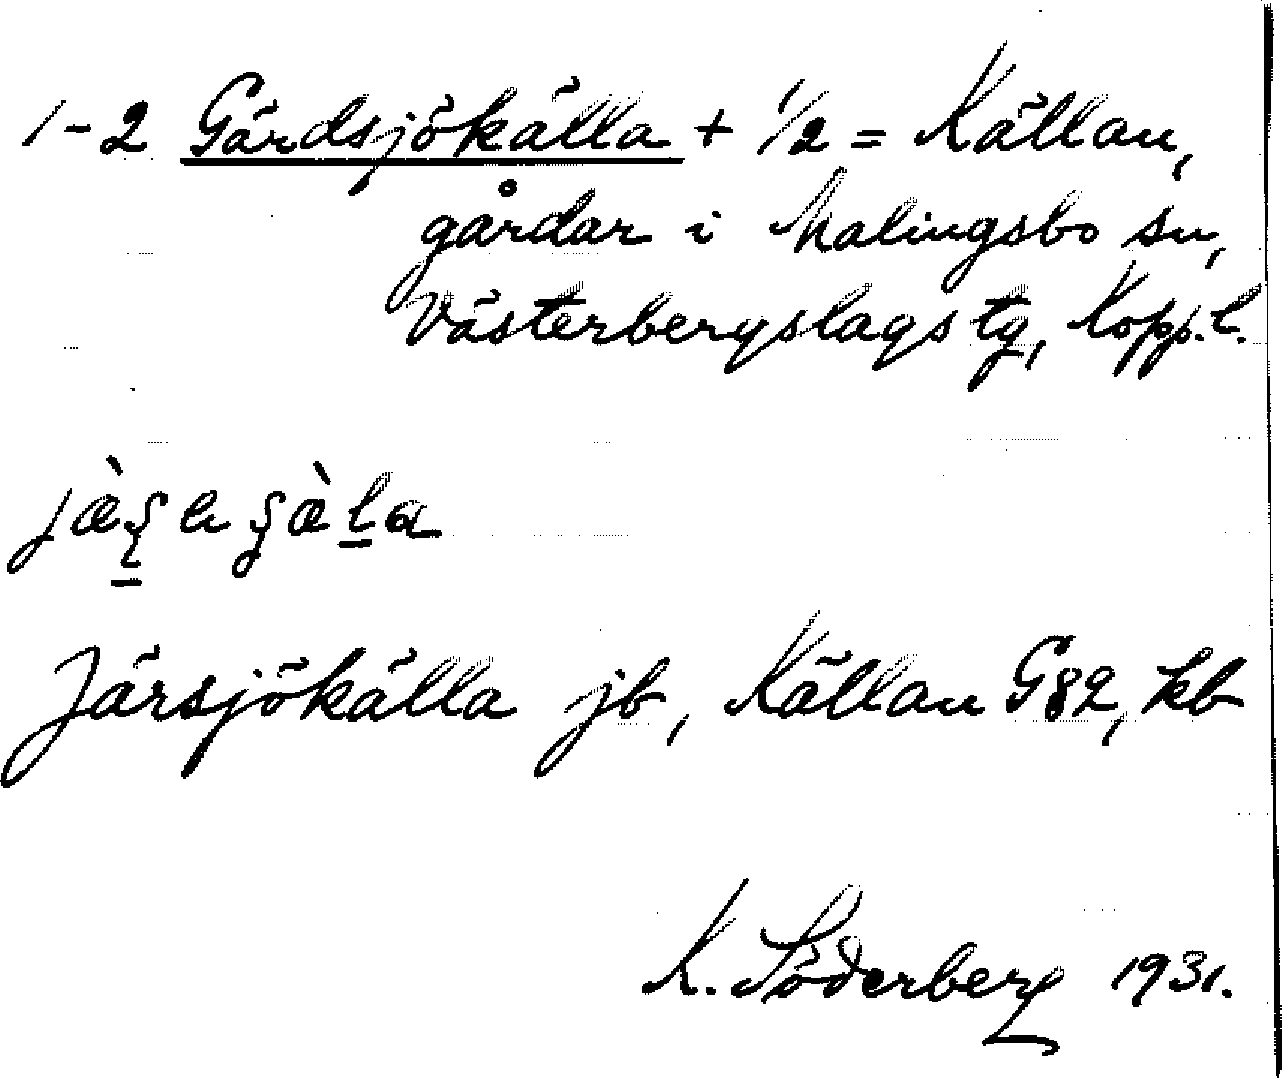 1-2 Gärdsjökälla + 1/2 = Källan,
gårdar i Malingsbo sn,
Västerbergslags tg, Kopp. l.
Järsjökälla jb, Källan G82, kb
K. Söderberg 1931.